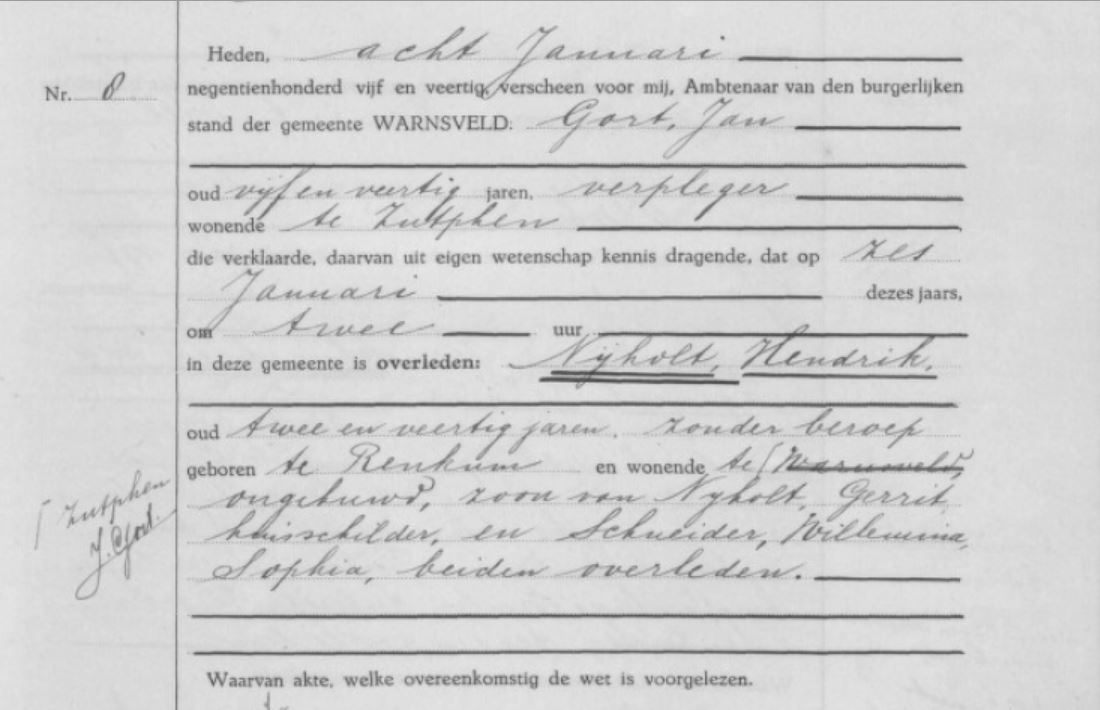 Heden, acht Januari
Nr. 8 negentienhonderd vijf en veertig, verscheen voor mij, Ambtenaar van den burgerlijken
stand der gemeente WARNSVELD: Gort, Jan
oud vijf en veertig jaren, verpleger
wonende te Zutphen
die verklaarde, daarvan uit eigen wetenschap kennis dragende, dat op zes
Januari dezes jaars,
om twee uur
in deze gemeente is overleden: Nyholt, Hendrik,
oud twee en veertig jaren, zonder beroep
geboren te Renkum en wonende te Warnsveld,
ongehuwd, zoon van Nyholt, Gerrit,
huisschilder, en Schneider, Willemina,
Sophia, beiden overleden.
Zutphen
J. Gort.
Waarvan akte, welke overeenkomstig de wet is voorgelezen.